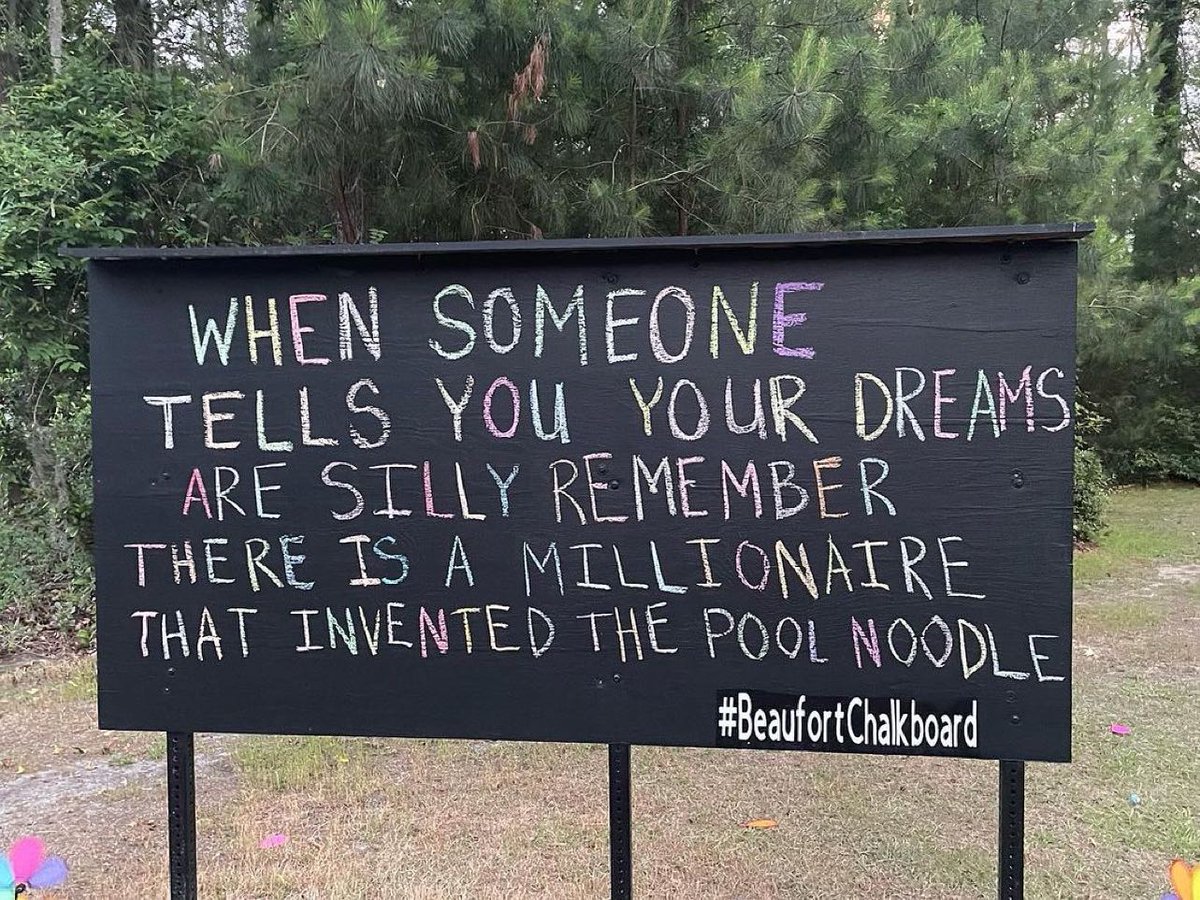 WHEN SOMEONE
TELLS YOU YOUR DREAMS
ARE SILLY REMEMBER
THERE IS A MILLIONAIRE
THAT INVENTED THE POOL NOODLE
#BeaufortChalkboard